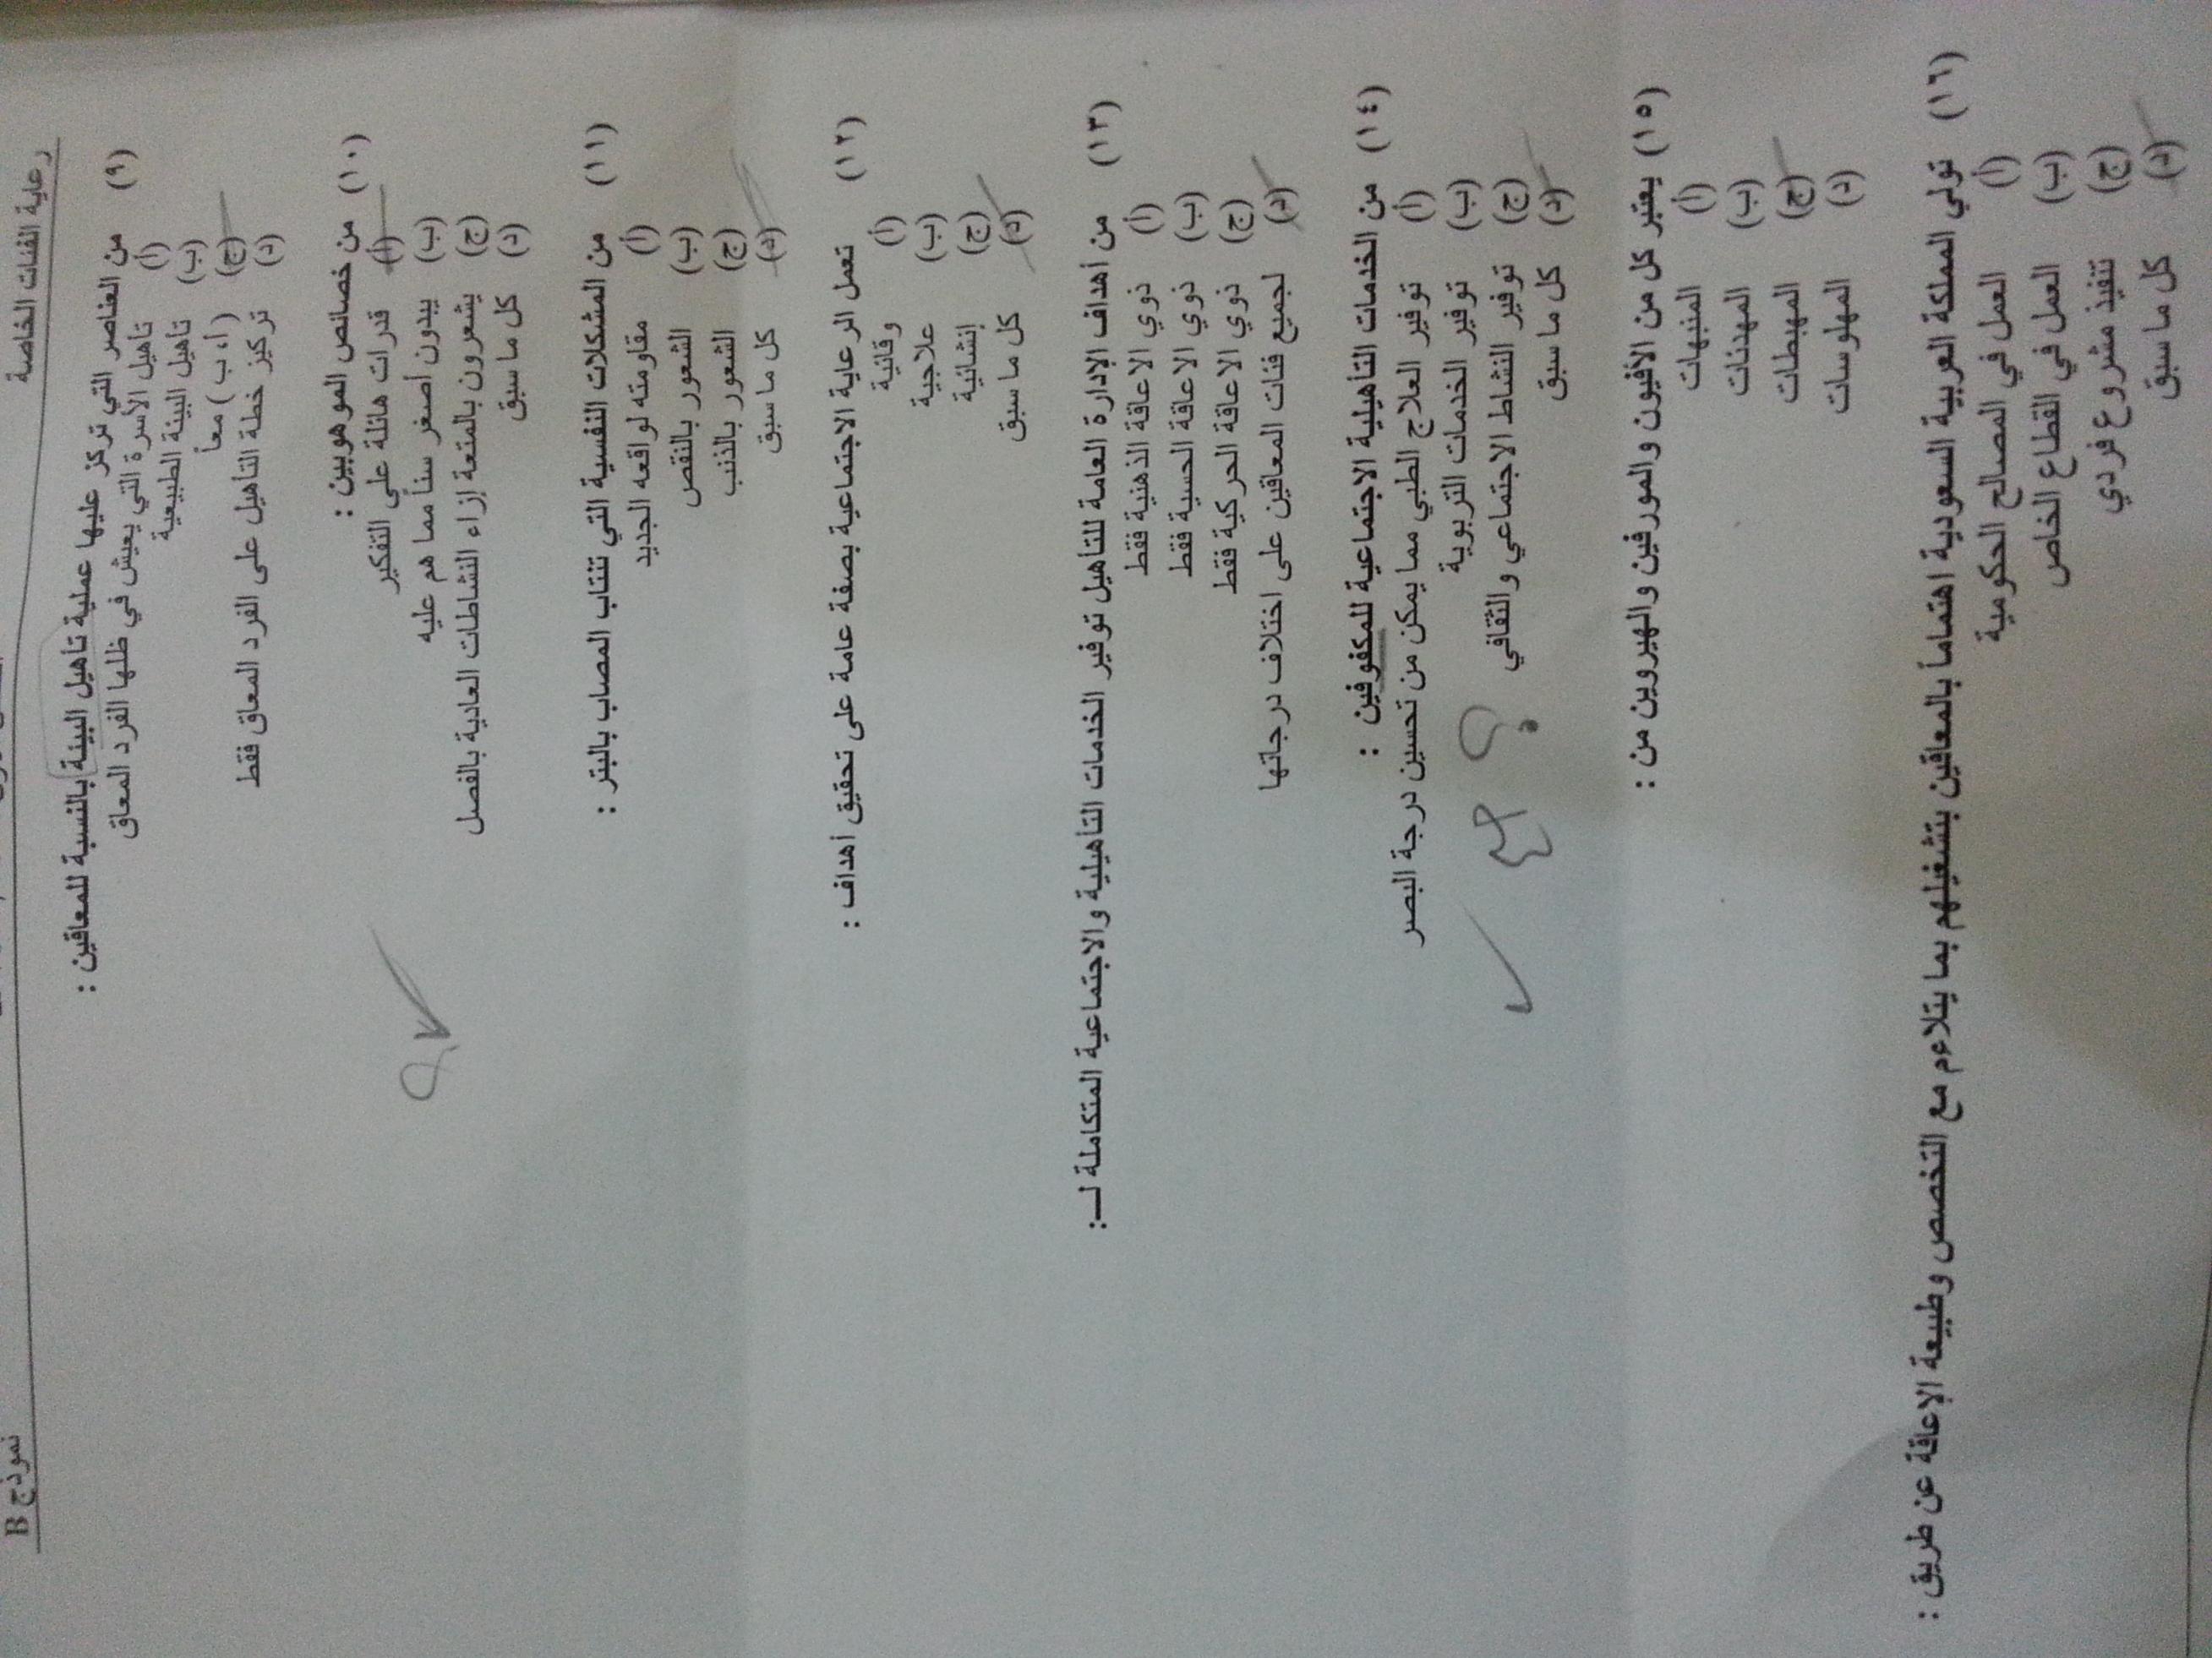 رعاية الفئات الخاصة
نموذج B
(٩) من العناصر التي تركز عليها عملية تأهيل البيئة بالنسبة للمعاقين :
(أ) تأهيل الأسرة التي يعيش في ظلها الفرد المعاق
(ب) تأهيل البيئة الطبيعية
(ج) ( أ ، ب ) معاً
(د) تركيز خطة التأهيل على الفرد المعاق فقط
(١٠) من خصائص الموهوبين :
(أ) قدرات هائلة على التفكير
(ب) يبدون أصغر سناً مما هم عليه
(ج) يشعرون بالمتعة إزاء النشاطات العادية بالفصل
(د) كل ما سبق
(١١) من المشكلات النفسية التي تنتاب المصاب بالبتر :
(أ) مقاومته لواقعه الجديد
(ب) الشعور بالنقص
(ج) الشعور بالذنب
(د) كل ما سبق
(١٢) تعمل الرعاية الاجتماعية بصفة عامة على تحقيق أهداف :
(أ) وقائية
(ب) علاجية
(ج) إنشائية
(د) كل ما سبق
(١٣) من أهداف الإدارة العامة للتأهيل توفير الخدمات التأهيلية والاجتماعية المتكاملة لـ:
(أ) ذوي الاعاقة الذهنية فقط
(ب) ذوي الاعاقة الحسية فقط
(ج) ذوي الاعاقة الحركية فقط
(د) لجميع فئات المعاقين على اختلاف درجاتها
(١٤) من الخدمات التأهيلية الاجتماعية للمكفوفين :
(أ) توفير العلاج الطبي مما يمكن من تحسين درجة البصر
(ب) توفير الخدمات التربوية
(ج) توفير النشاط الاجتماعي والثقافي
(د) كل ما سبق
(١٥) يعتبر كل من الأفيون والمورفين والهيروين من :
(أ) المنبهات
(ب) المهدئات
(ج) المهبطات
(د) المهلوسات
(١٦) تولي المملكة العربية السعودية اهتماماً بالمعاقين بتشغيلهم بما يتلاءم مع التخصص وطبيعة الإعاقة عن طريق :
(أ) العمل في المصالح الحكومية
(ب) العمل في القطاع الخاص
(ج) تنفيذ مشروع فردي
(د) كل ما سبق